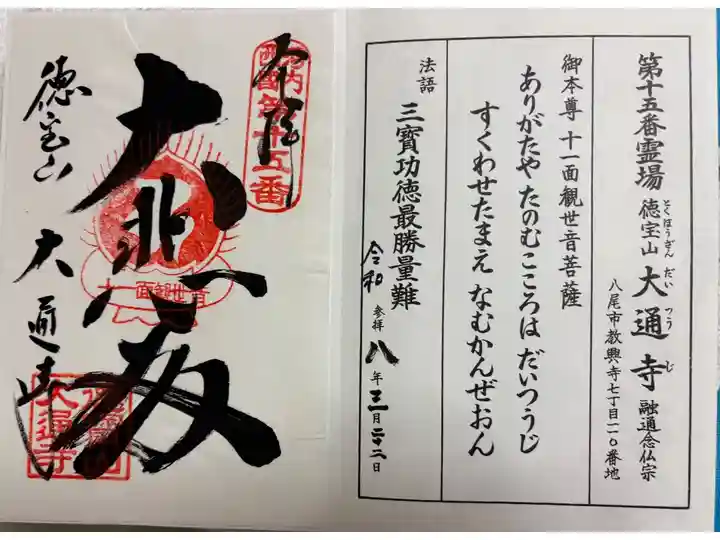 第十五番霊場 徳宝山 大通寺 融通念仏宗
とくほうざん だいつうじ
八尾市教興寺七丁目一一〇番地
御本尊 十一面観世音菩薩
ありがたや たのむこころは だいつうじ
すくわせたまえ なむかんぜおん
法語 三寶功徳最勝量難
令和 参拝 八年三月二二日
奉拝
第十五番
大悲殿
徳宝山 大通寺